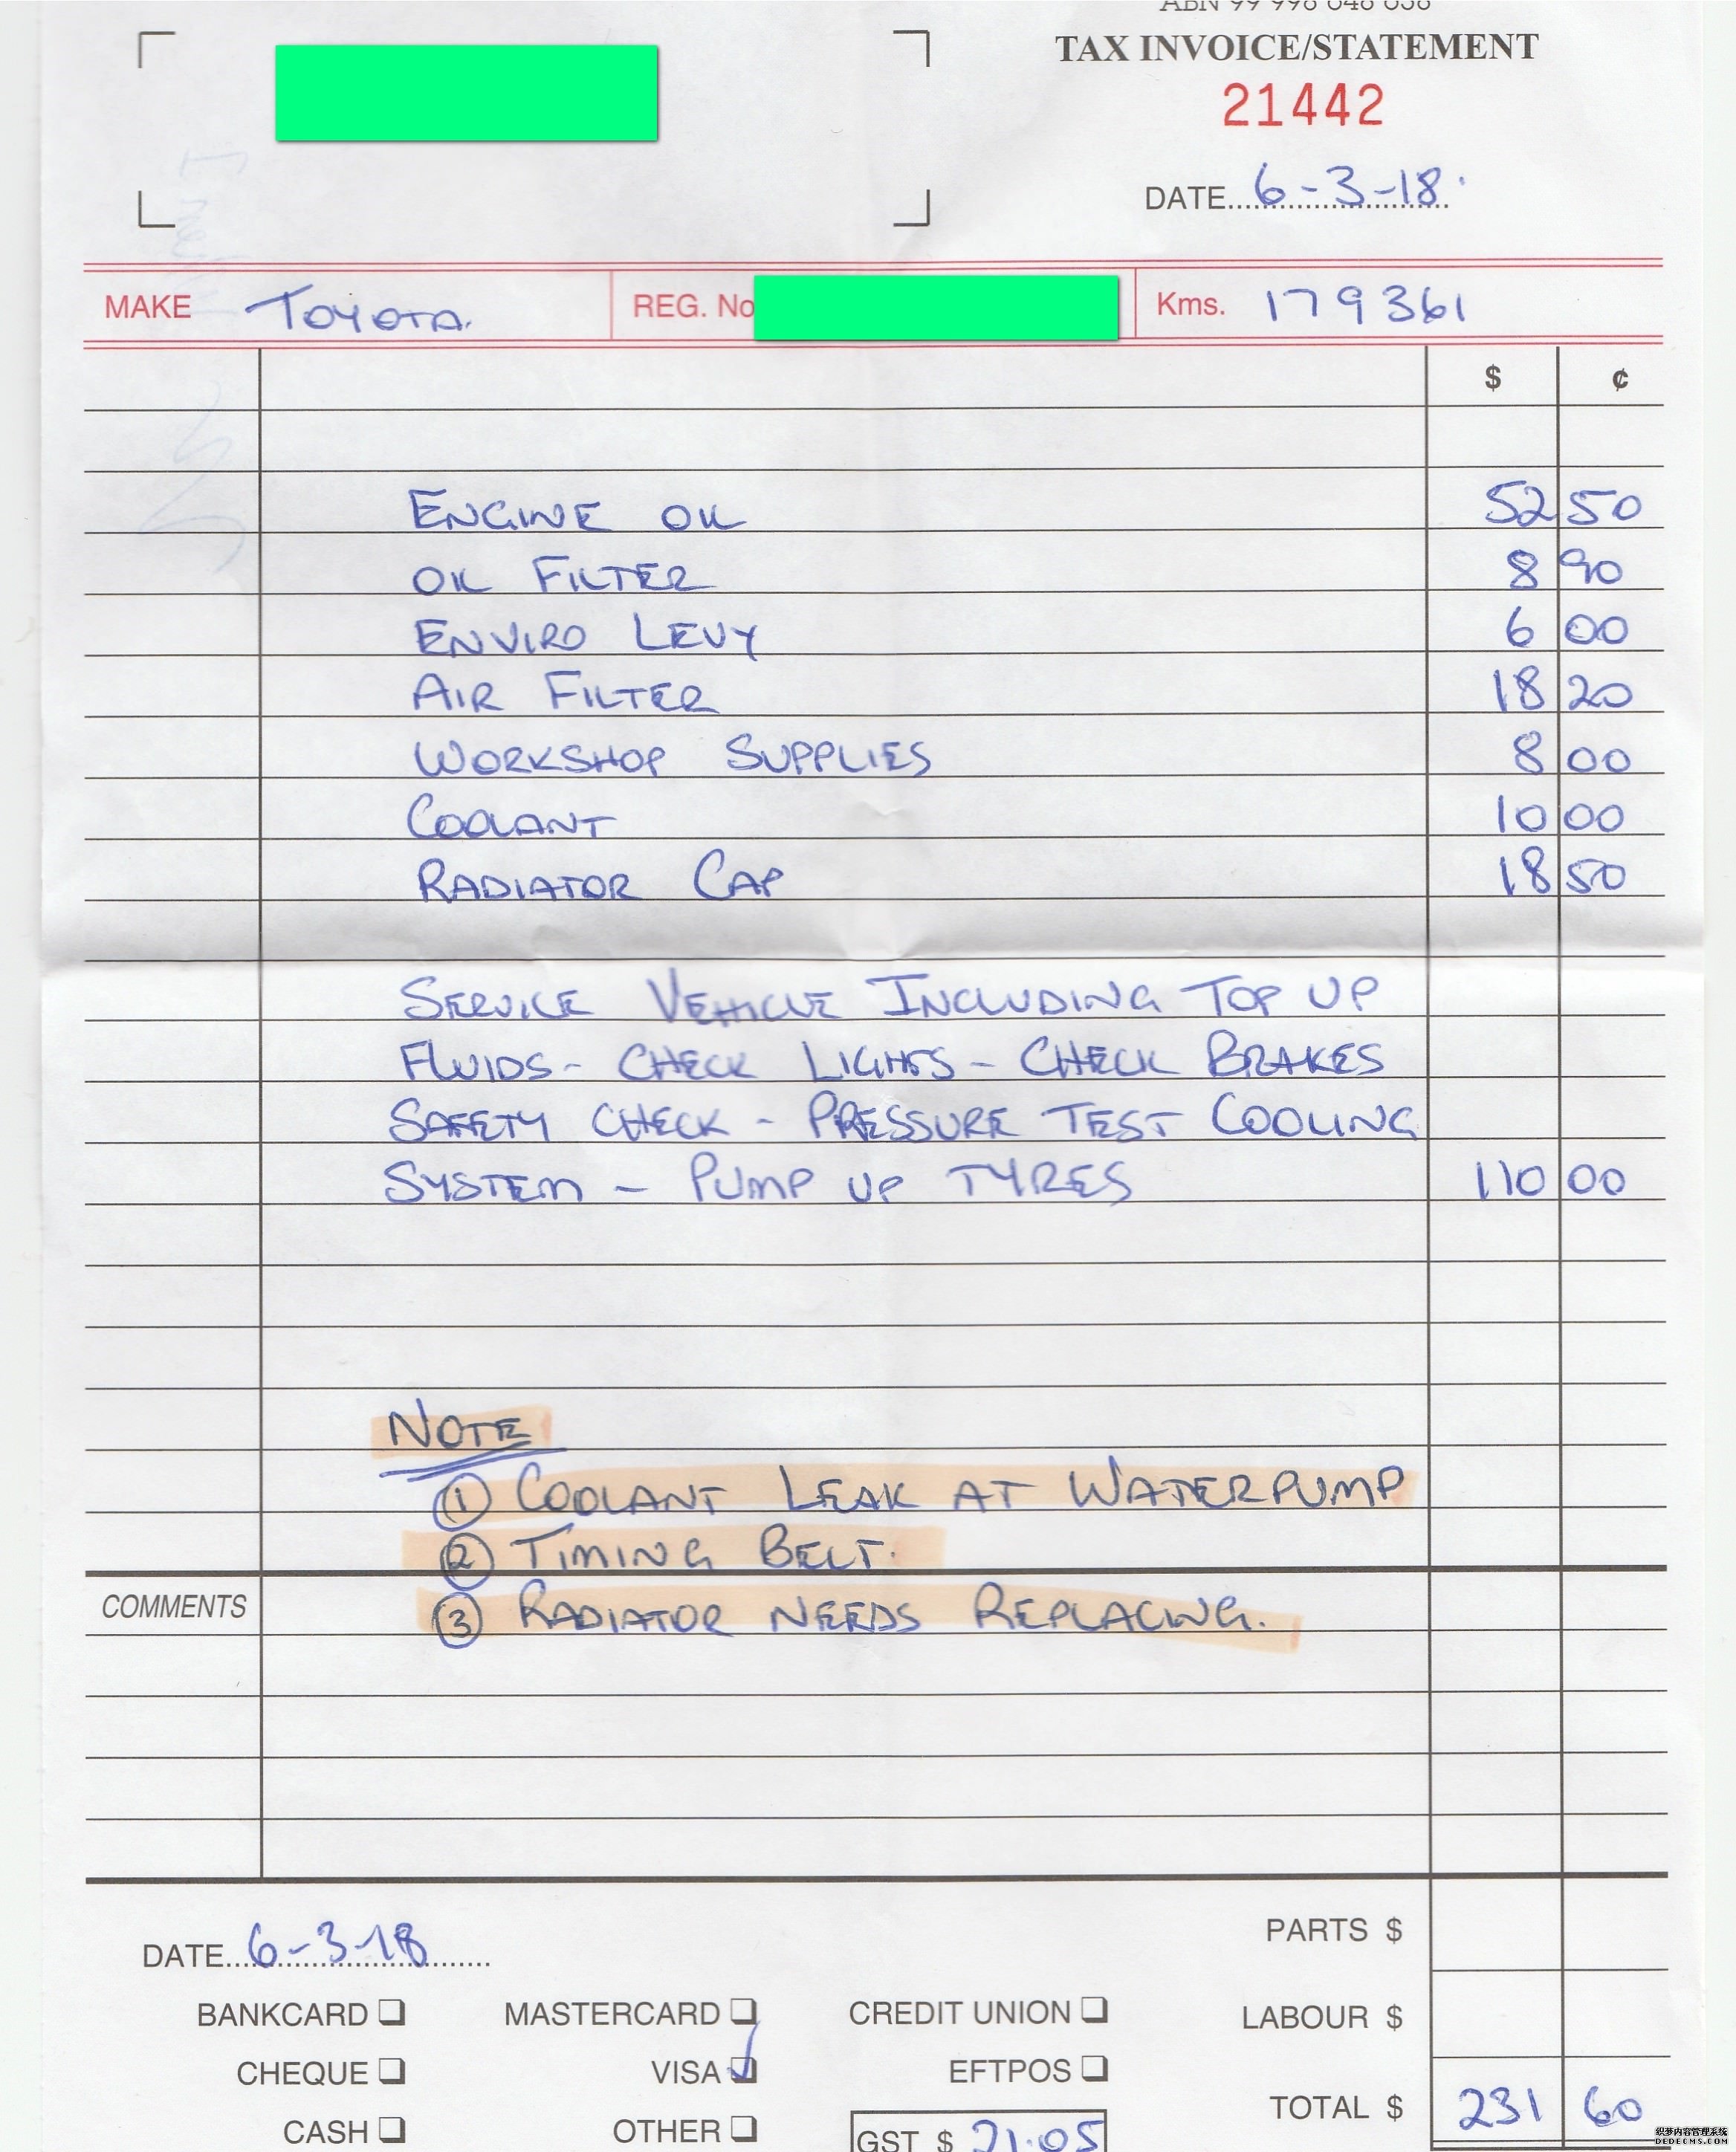 TAX INVOICE/STATEMENT
21442
DATE 6-3-18.
MAKE TOYOTA. REG. No Kms. 179361
$ ¢
ENGINE OIL 52 50
OIL FILTER 8 90
ENVIRO LEVY 6 00
AIR FILTER 18 20
WORKSHOP SUPPLIES 8 00
COOLANT 10 00
RADIATOR CAP 18 50
SERVICE VEHICLE INCLUDING TOP UP
FLUIDS - CHECK LIGHTS - CHECK BRAKES
SAFETY CHECK - PRESSURE TEST COOLING
SYSTEM - PUMP UP TYRES 110 00
NOTE
① COOLANT LEAK AT WATERPUMP
② TIMING BELT.
COMMENTS ③ RADIATOR NEEDS REPLACING.
DATE 6-3-18
PARTS $
BANKCARD MASTERCARD CREDIT UNION LABOUR $
CHEQUE VISA EFTPOS
TOTAL $ 231 60
CASH OTHER GST $ 21.05
织梦内容管理系统
DEDECMS.COM